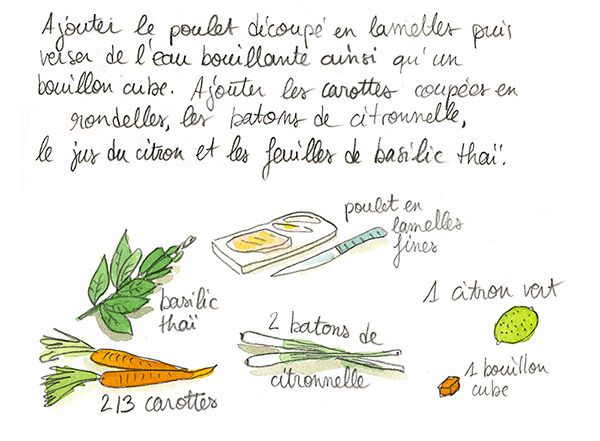 Ajouter le poulet découpé en lamelles puis
verser de l'eau bouillante ainsi qu'un
bouillon cube. Ajouter les carottes coupées en
rondelles, les batons de citronnelle,
le jus du citron et les feuilles de basilic thaï.
poulet en
lamelles
fines
basilic
thaï
1 citron vert
2 batons de
citronnelle
1 bouillon
cube
2/3 carottes